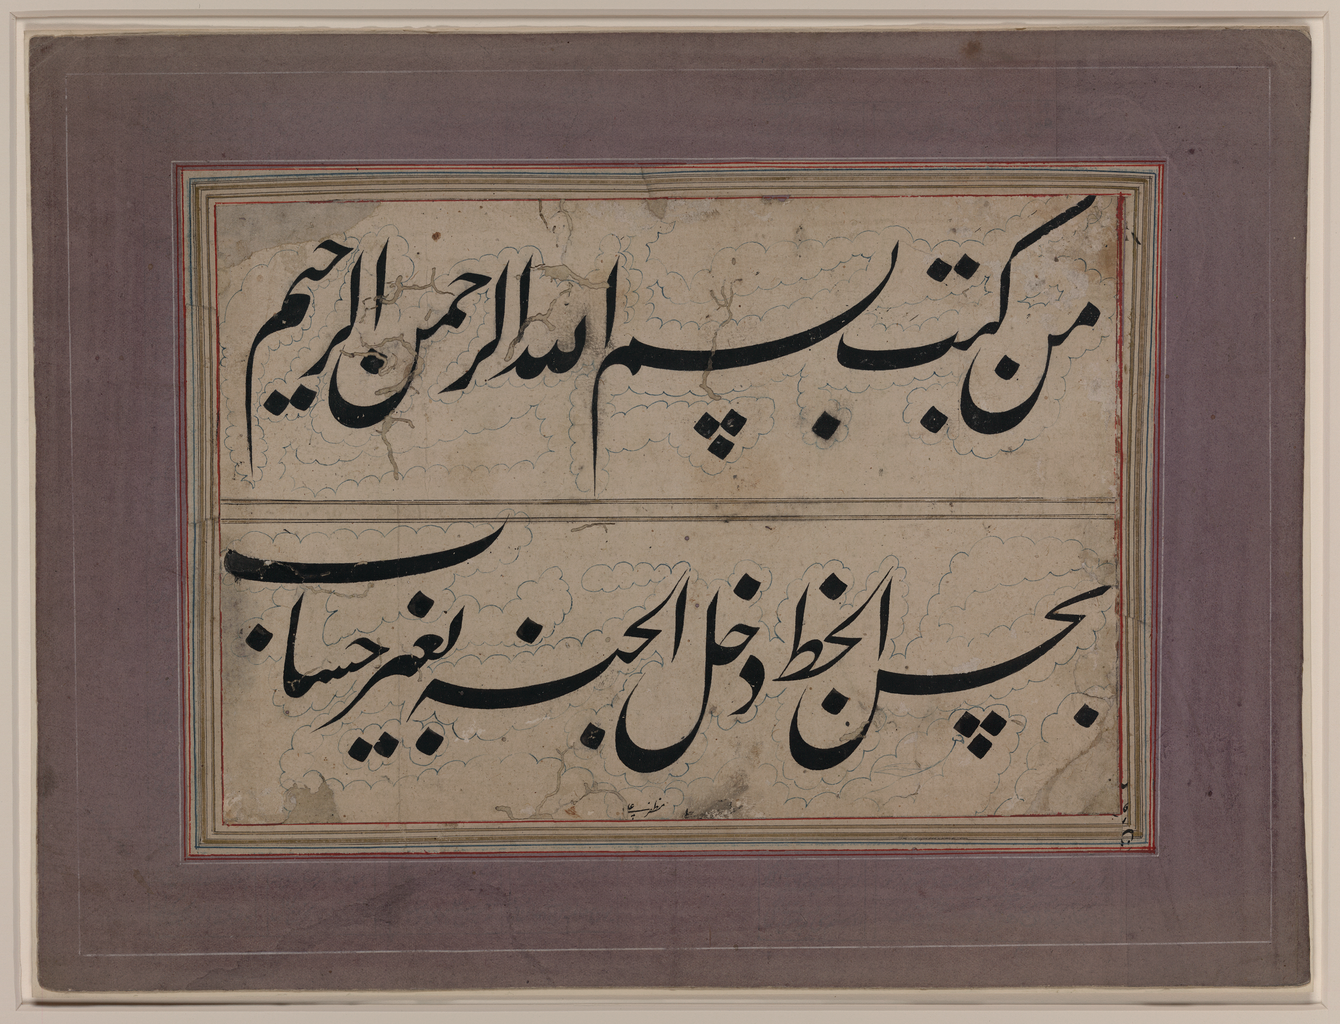 من كتب بسم الله الرحمن الرحيم
بحسن الخط دخل الجنة بغير حساب